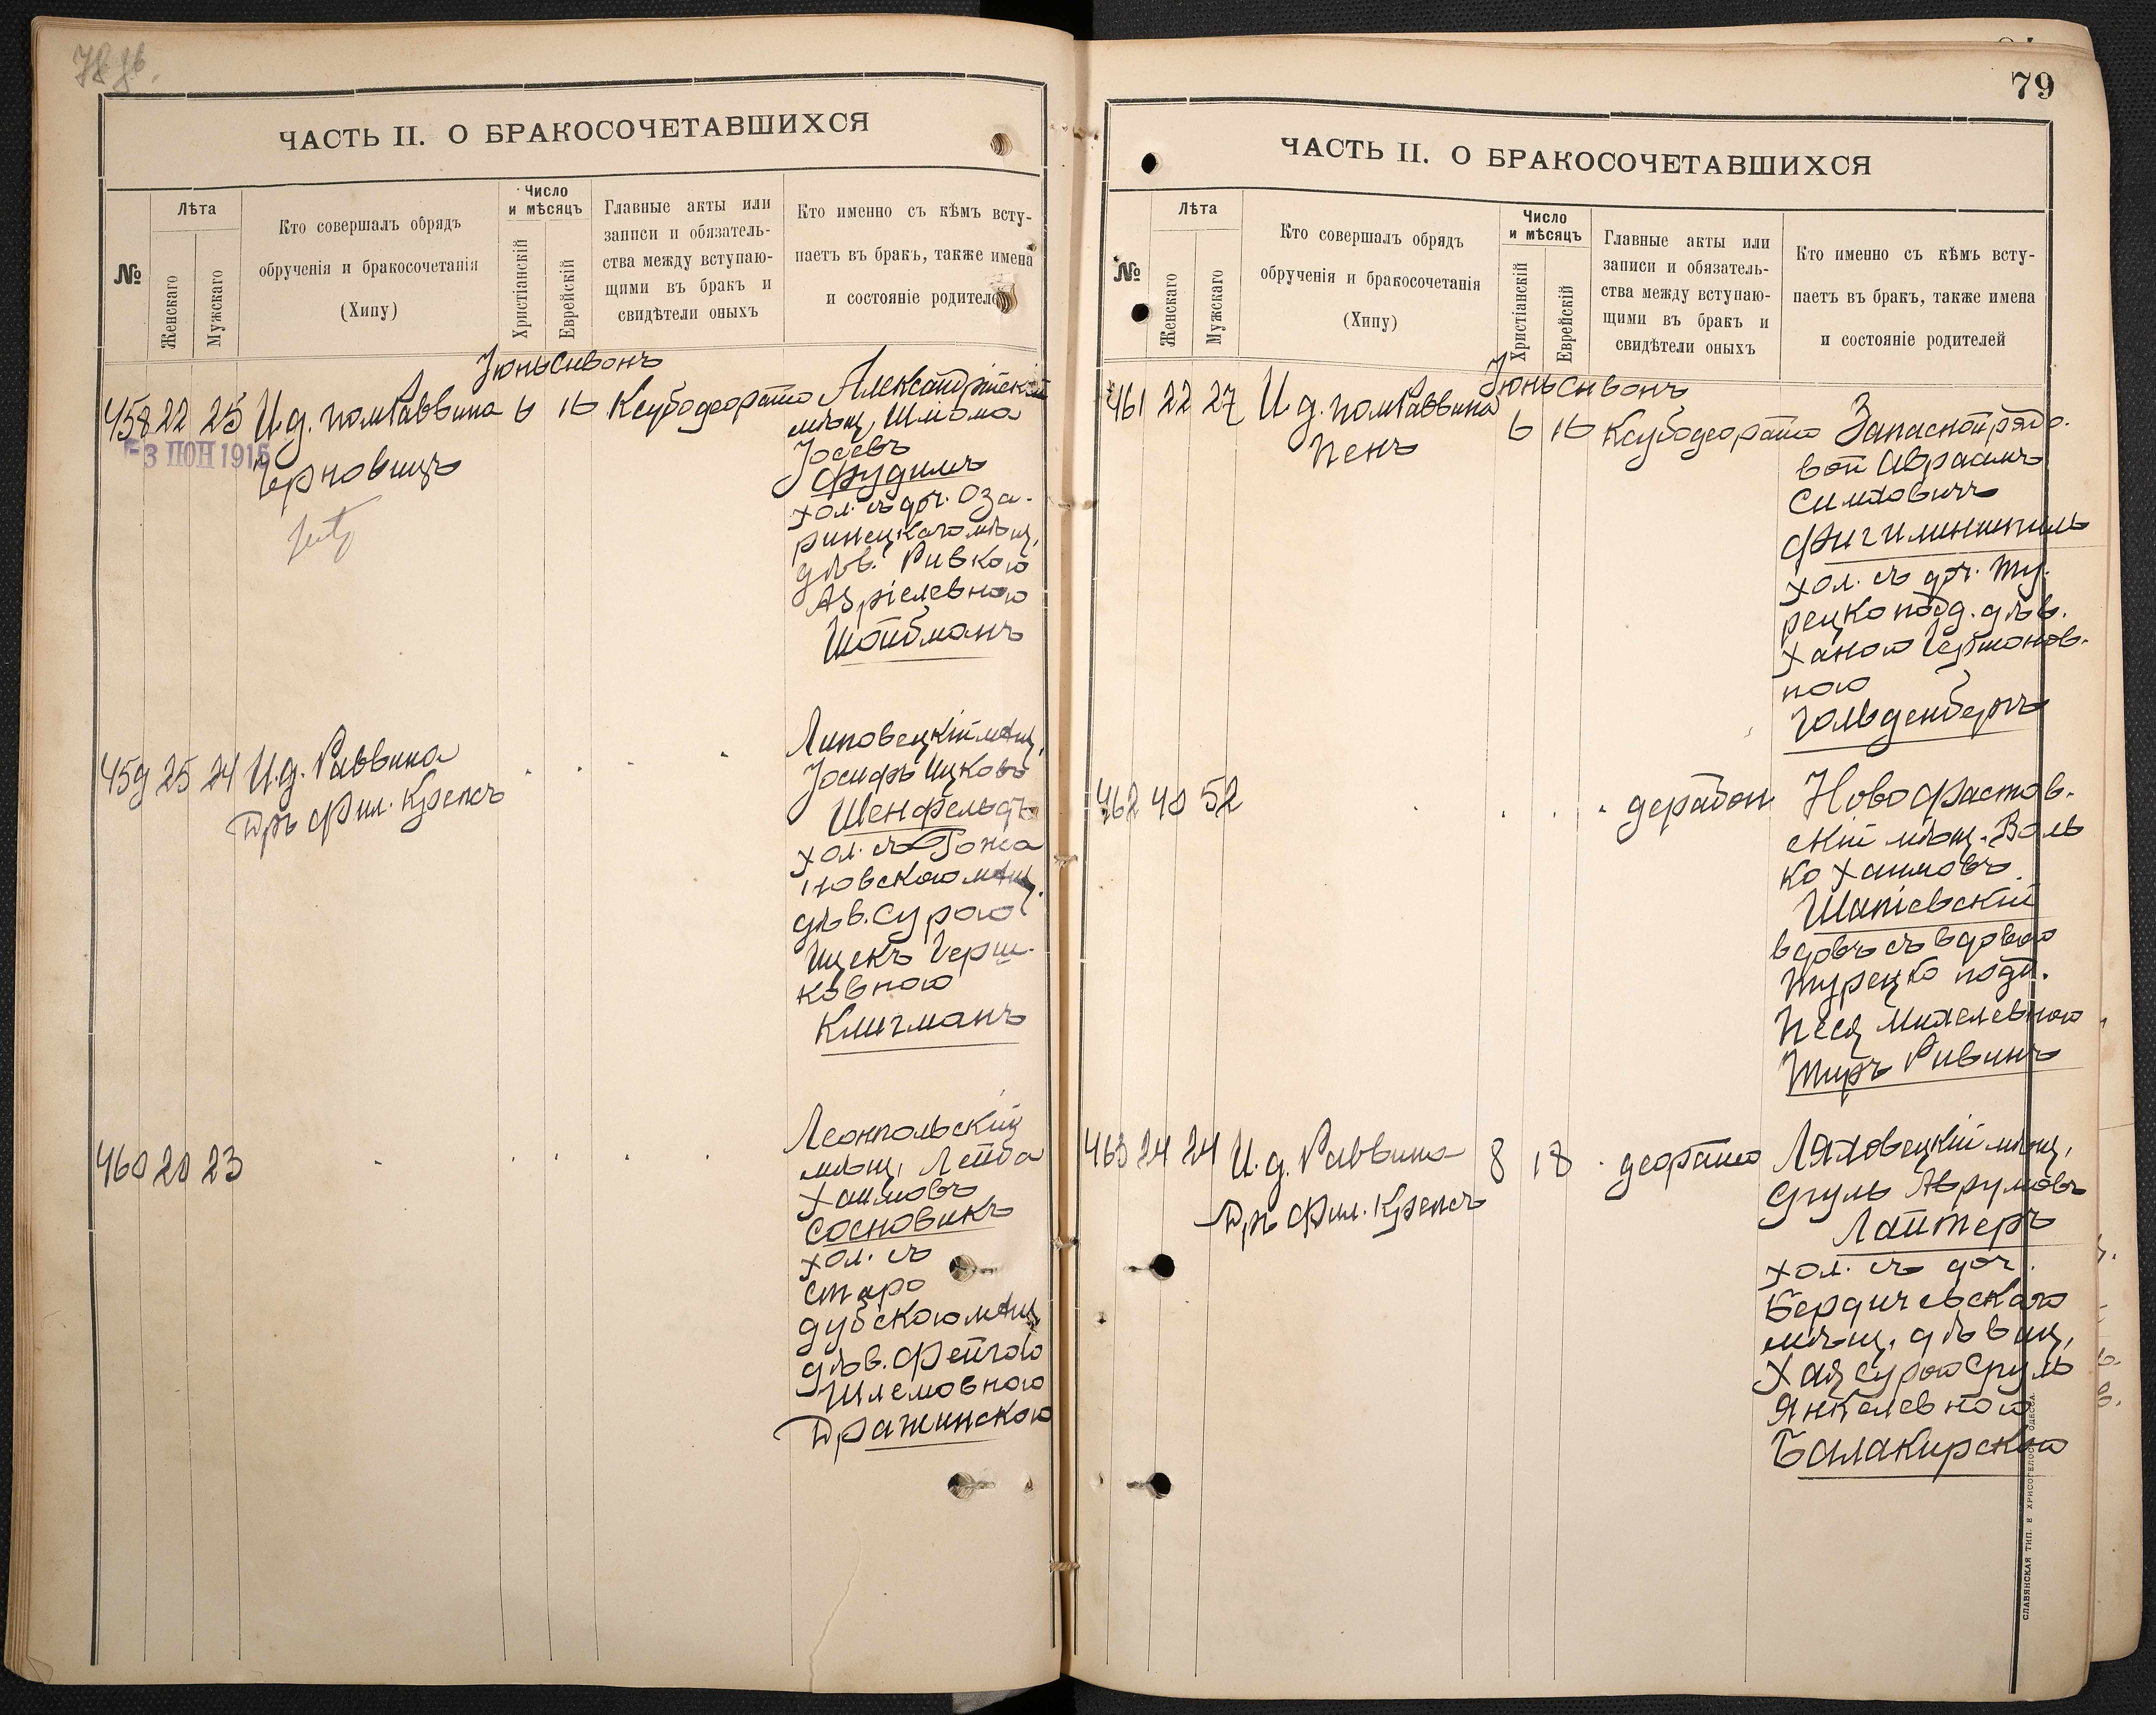 ЧАСТЬ II. О БРАКОСОЧЕТАВШИХСЯ
№
Лѣта
Женскаго
Мужскаго
Кто совершалъ обрядъ
обрученія и бракосочетанія
(Хипу)
Число
и мѣсяцъ
Христіанскій
Еврейскій
Главные акты или
записи и обязатель-
ства между вступаю-
щими въ бракъ и
свидѣтели оныхъ
Кто именно съ кѣмъ всту-
паетъ въ бракъ, также имена
и состояніе родителей
Іюнь Сивонъ
458 22 25 И.д. пом Раввина 6 16 Ксубо деорато Александрійскій
мѣщ. Шлома
3 ІЮН 1915
Іосевъ
Фудимъ
хол. съ доч. Оза-
ринецкаго мѣщ.
дѣв. Ривкою
Азріелевною
Шойбманъ
459 25 24 И.д. Раввина
Дръ Фил. Крепсъ
Липовецкій мѣщ.
Іосифъ Ицковъ
Шенфельдъ
хол. съ Гожа
новскою мѣщ.
дѣв. Сурою
Ицекъ Герш-
ковною
Клигманъ
460 20 23
Леонпольскій
мѣщ. Лейба
Хаимовъ
Сосновикъ
хол. съ
Старо
дубскою мѣщ.
дѣв. Фейгою
Шлемовною
Дражинскою
79
ЧАСТЬ II. О БРАКОСОЧЕТАВШИХСЯ
№
Лѣта
Женскаго
Мужскаго
Кто совершалъ обрядъ
обрученія и бракосочетанія
(Хипу)
Число
и мѣсяцъ
Христіанскій
Еврейскій
Главные акты или
записи и обязатель-
ства между вступаю-
щими въ бракъ и
свидѣтели оныхъ
Кто именно съ кѣмъ всту-
паетъ въ бракъ, также имена
и состояніе родителей
Іюнь Сивонъ
461 22 27 И.д. пом Раввина
Пенъ
6 16 Ксубо деорато Запасной рядо-
вой Авраамъ
Симховичъ
хол. съ доч. Ту-
рецко подд. дѣв.
Ханою Гершонов-
ною
Гольденбергъ
462 40 52 дерабон Новофастов-
скій мѣщ. Воль
ко Хаимовъ
Шапіевскій
вдовъ съ вдовою
Турецко подд.
Песя Михелевною
Тиръ Ривинъ
463 24 24 И.д. Раввина
Дръ Фил. Крепсъ
8 18 деорато Ляховецкій мѣщ.
Сруль Аврумовъ
Лайтеръ
хол. съ доч.
Бердичевскаго
мѣщ. дѣвиц.
Хая Сурою Сруль
Янкелевною
Балакирскою
СЛАВЯНСКАЯ ТИП. Е ХРИСОГЕЛОСЪ ОДЕССА.